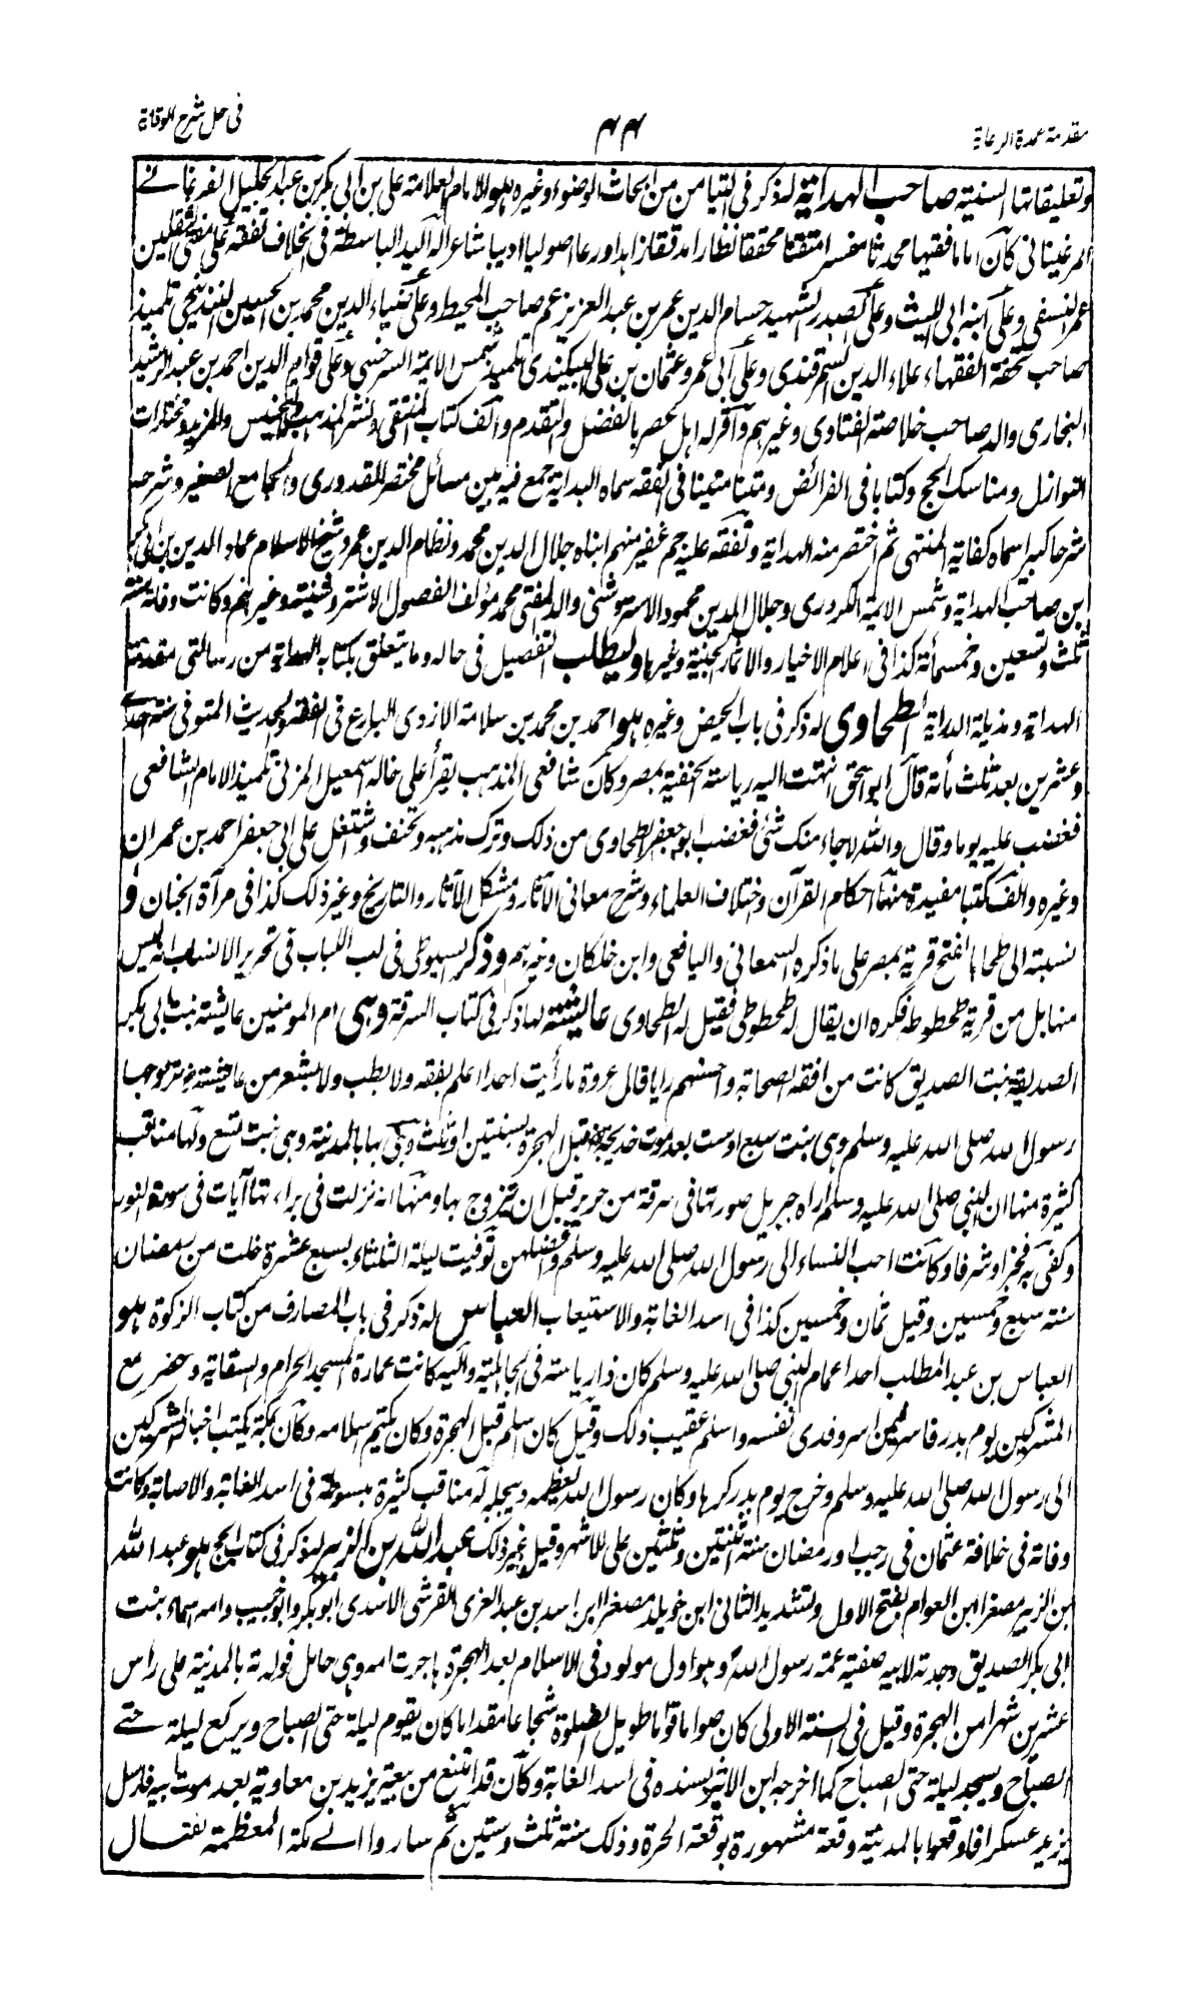 مقدمة عمدة الرعاية
۴۴
فى حل شرح الوقاية
وتعليقاتها السنية صاحب الهداية له ذكر فى التيامن من ابحاث الوضوء وغيره هو الامام العلامة على بن ابى بكر بن عبد الجليل الفرغانى
المرغينانى كان اماما فقيها محدثا مفسرا متقنا محققا نظارا مدققا زاهدا ورعا اصوليا اديبا شاعرا له اليد الباسطة فى الخلاف تفقه على مفتى الثقلين
عمر النسفى وعلى ابنه ابى الليث وعلى الصدر الشهيد حسام الدين عمر بن عبد العزيز عم صاحب المحيط وعلى ضياء الدين محمد بن الحسين البندنيجى تلميذ
صاحب تحفة الفقهاء علاء الدين السمرقندى وعلى ابى عمرو عثمان بن على البيكندى تلميذ شمس الائمة السرخسى وعلى قوام الدين احمد بن عبد الرشيد
البخارى والد صاحب خلاصة الفتاوى وغيرهم واقر له اهل عصره بالفضل والتقدم والف كتاب المنتقى ونشر المذهب والتجنيس والمزيد ومختارات
النوازل ومناسك الحج وكتابا فى الفرائض ومتنا متينا فى الفقه سماه البداية جمع فيه بين مسائل مختصر القدورى والجامع الصغير وشرحه
شرحا كبيرا سماه كفاية المنتهى ثم اختصر منه الهداية وتفقه عليه جم غفير منهم ابناه جلال الدين محمد ونظام الدين عمر وشيخ الاسلام عماد الدين بن ابى بكر
ابن صاحب الهداية وشمس الائمة الكردرى وجلال الدين محمود الاستروشنى والد المفتى محمد مؤلف الفصول الاشتروشنية وغيرهم وكانت وفاته سنة
ثلث وتسعين وخمسمأئة كذا فى اعلام الاخيار والاثمار الجنية وغيرها وليطلب التفصيل فى حاله وما يتعلق بكتابه الهداية من رسالتى مقدمة
الهداية ومذيلة الدراية الطحاوى له ذكر فى باب الحيض وغيره هو احمد بن محمد بن سلامة الازدى البارع فى الفقه والحديث المتوفى سنة احدى
وعشرين بعد ثلث مأئة قال ابو اسحق انتهت اليه رياسة الحنفية بمصر وكان شافعى المذهب يقرأ على خاله اسمعيل المزنى تلميذ الامام الشافعى
فغضب عليه يوما وقال والله لا جاء منك شئ فغضب ابو جعفر الطحاوى من ذلك وترك مذهبه وتحنف واشتغل على ابى جعفر احمد بن عمران
وغيره والف كتبا مفيدة منها احكام القرآن واختلاف العلماء وشرح معانى الآثار ومشكل الآثار والتاريخ وغير ذلك كذا فى مرآة الجنان و
نسبته الى طحا بالفتح قرية بمصر على ما ذكره السمعانى واليافعى وابن خلكان وغيرهم وذكر السيوطى فى لب اللباب فى تحرير الانساب انه ليس
منها بل من قرية طحطوطة فكره ان يقال له طحطوطى فقيل له الطحاوى عائشة لها ذكر فى كتاب السرقة وهى ام المومنين عايشة بنت ابى بكر
الصديقة بنت الصديق كانت من افقه الصحابة واحسنهم رايا قال عروة ما رأيت احدا اعلم بفقه ولا بطب ولا بشعر من عايشة تزوجها
رسول الله صلى الله عليه وسلم وهى بنت سبع او ست بعد موت خديجة قبل الهجرة بسنتين او ثلث وبنى بها بالمدينة وهى بنت تسع ولها مناقب
كثيرة منها ان النبى صلى الله عليه وسلم اراه جبريل صورتها فى سرقة من حرير قبل ان تزوج بها ومنها انه نزلت فى براءتها آيات فى سورة النور
وكفى به فخرا وشرفا وكانت احب النساء الى رسول الله صلى الله عليه وسلم وافضلهن توفيت ليلة الثلثاء بسبع عشرة خلت من رمضان
سنة سبع وخمسين وقيل ثمان وخمسين كذا فى اسد الغابة والاستيعاب العباس له ذكر فى باب المصارف من كتاب الزكوة هو
العباس بن عبد المطلب احد اعمام النبى صلى الله عليه وسلم كان ذا رياسة فى الجاهلية واليه كانت عمارة المسجد الحرام والسقاية وحضر مع
المشركين يوم بدر فاسر فيمن اسر وفدى نفسه واسلم عقيب ذلك وقيل كان اسلم قبل الهجرة وكان يكتم اسلامه وكان بمكة يكتب اخبار المشركين
الى رسول الله صلى الله عليه وسلم وخرج يوم بدر كرها وكان رسول الله يعظمه ويبجله له مناقب كثيرة مبسوطة فى اسد الغابة والاصابة وكانت
وفاته فى خلافة عثمان فى رجب او رمضان سنة اثنتين وثلثين على الاشهر وقيل غير ذلك عبد الله بن الزبير له ذكر فى كتاب الحج هو عبد الله
بن الزبير مصغرا ابن العوام بفتح الاول وتشديد الثانى ابن خويلد مصغرا ابن اسد بن عبد العزى القرشى الاسدى ابو بكر وابو خبيب وامه اسماء بنت
ابى بكر الصديق وجدته لابيه صفية عمة رسول الله وهو اول مولود فى الاسلام بعد الهجرة هاجرت امه وهى حامل فولدته بالمدينة على راس
عشرين شهرا من الهجرة وقيل فى السنة الاولى كان صواما قواما طويل الصلوة شجاعا مقداما كان يقوم ليلة حتى الصباح ويركع ليلة حتى
الصباح ويسجد ليلة حتى الصباح كما اخرجه ابن الاثير بسنده فى اسد الغابة وكان قد امتنع من بيعة يزيد بن معاوية بعد موت ابيه فارسل
يزيد عسكرا فاوقعوا بالمدينة وقعة مشهورة بوقعة الحرة وذلك سنة ثلث وستين ثم ساروا الى مكة المعظمة لقتال